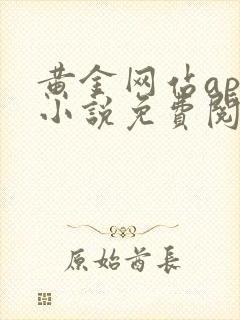 黄金网站ap
小説免費閱
原始酋長